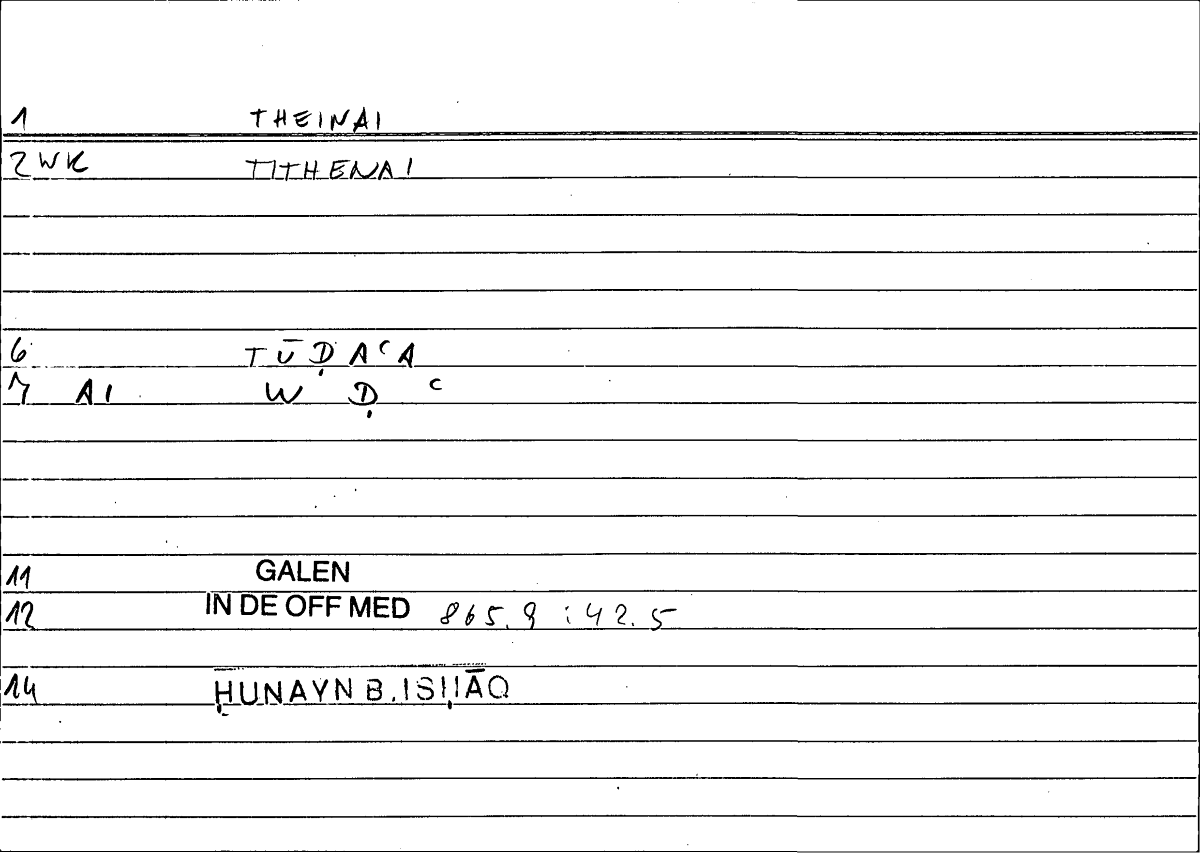 1 THEINAI
2 WK TITHENAI
6 TŪḌAʿA
7 AI W Ḍ ʿ
11 GALEN
12 IN DE OFF MED 865.9 : 42.5
14 ḤUNAYN B. ISḤĀQ